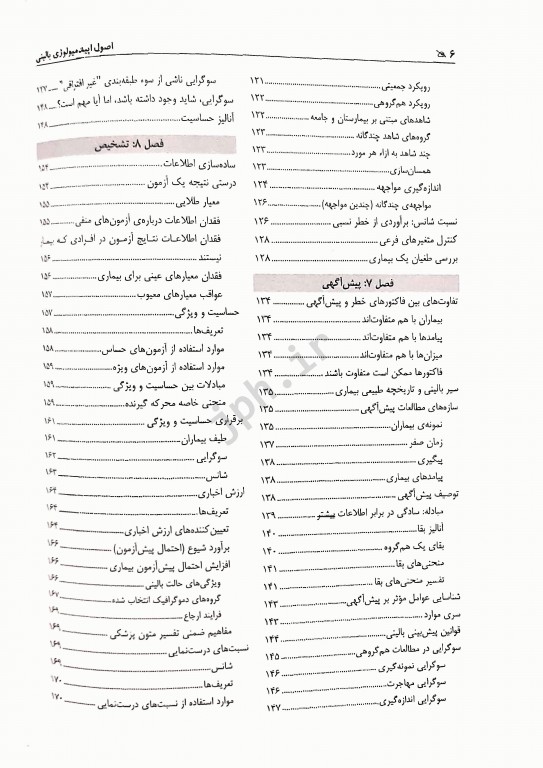 ۶ اصول اپیدمیولوژی بالینی
رویکرد جمعیتی ۱۲۱
رویکرد هم‌گروهی ۱۲۲
شاهدهای مبتنی بر بیمارستان و جامعه ۱۲۲
گروه‌های شاهد چندگانه ۱۲۳
چند شاهد به ازاء هر مورد ۱۲۳
همسان‌سازی ۱۲۳
اندازه‌گیری مواجهه ۱۲۴
مواجهه‌ی چندگانه (چندین مواجهه) ۱۲۶
نسبت شانس: برآوردی از خطر نسبی ۱۲۶
کنترل متغیرهای فرعی ۱۲۸
بررسی طغیان یک بیماری ۱۲۸
فصل ۷: پیش‌آگهی
تفاوت‌های بین فاکتورهای خطر و پیش‌آگهی ۱۳۴
بیماران با هم متفاوت‌اند ۱۳۴
پیامدها با هم متفاوت‌اند ۱۳۴
میزان‌ها با هم متفاوت‌اند ۱۳۴
فاکتورها ممکن است متفاوت باشند ۱۳۴
سیر بالینی و تاریخچه طبیعی بیماری ۱۳۵
سازه‌های مطالعات پیش‌آگهی ۱۳۵
نمونه‌ی بیماران ۱۳۵
زمان صفر ۱۳۷
پیگیری ۱۳۸
پیامدهای بیماری ۱۳۸
توصیف پیش‌آگهی ۱۳۸
مبادله: سادگی در برابر اطلاعات بیشتر ۱۳۹
آنالیز بقا ۱۴۰
بقای یک هم‌گروه ۱۴۰
منحنی‌های بقا ۱۴۱
تفسیر منحنی‌های بقا ۱۴۱
شناسایی عوامل مؤثر بر پیش‌آگهی ۱۴۳
سری موارد ۱۴۳
قوانین پیش‌بینی بالینی ۱۴۴
سوگرایی در مطالعات هم‌گروهی ۱۴۵
سوگرایی نمونه‌گیری ۱۴۶
سوگرایی مهاجرت ۱۴۶
سوگرایی اندازه‌گیری ۱۴۷
سوگرایی ناشی از سوء طبقه‌بندی "غیر افتراقی" ۱۴۷
سوگرایی، شاید وجود داشته باشد، اما آیا مهم است؟ ۱۴۸
آنالیز حساسیت ۱۴۸
فصل ۸: تشخیص
ساده‌سازی اطلاعات ۱۵۴
درستی نتیجه یک آزمون ۱۵۴
معیار طلایی ۱۵۵
فقدان اطلاعات درباره‌ی آزمون‌های منفی ۱۵۵
فقدان اطلاعات نتایج آزمون در افرادی که بیمار
نیستند ۱۵۶
فقدان معیارهای عینی برای بیماری ۱۵۶
عواقب معیارهای معیوب ۱۵۷
حساسیت و ویژگی ۱۵۷
تعریف‌ها ۱۵۸
موارد استفاده از آزمون‌های حساس ۱۵۸
موارد استفاده از آزمون‌های ویژه ۱۵۹
مبادلات بین حساسیت و ویژگی ۱۵۹
منحنی خاصه محرکه گیرنده ۱۵۹
برقراری حساسیت و ویژگی ۱۶۱
طیف بیماران ۱۶۱
سوگرایی ۱۶۲
شانس ۱۶۳
ارزش اخباری ۱۶۴
تعریف‌ها ۱۶۴
تعیین‌کننده‌های ارزش اخباری ۱۶۴
برآورد شیوع (احتمال پیش‌آزمون) ۱۶۶
افزایش احتمال پیش‌آزمون بیماری ۱۶۶
ویژگی‌های حالت بالینی ۱۶۶
گروه‌های دموگرافیک انتخاب شده ۱۶۷
فرایند ارجاع ۱۶۹
مفاهیم ضمنی تفسیر متون پزشکی ۱۶۹
نسبت‌های درست‌نمایی ۱۶۹
شانس ۱۶۹
تعریف‌ها ۱۷۰
موارد استفاده از نسبت‌های درست‌نمایی ۱۷۰
jph.ir